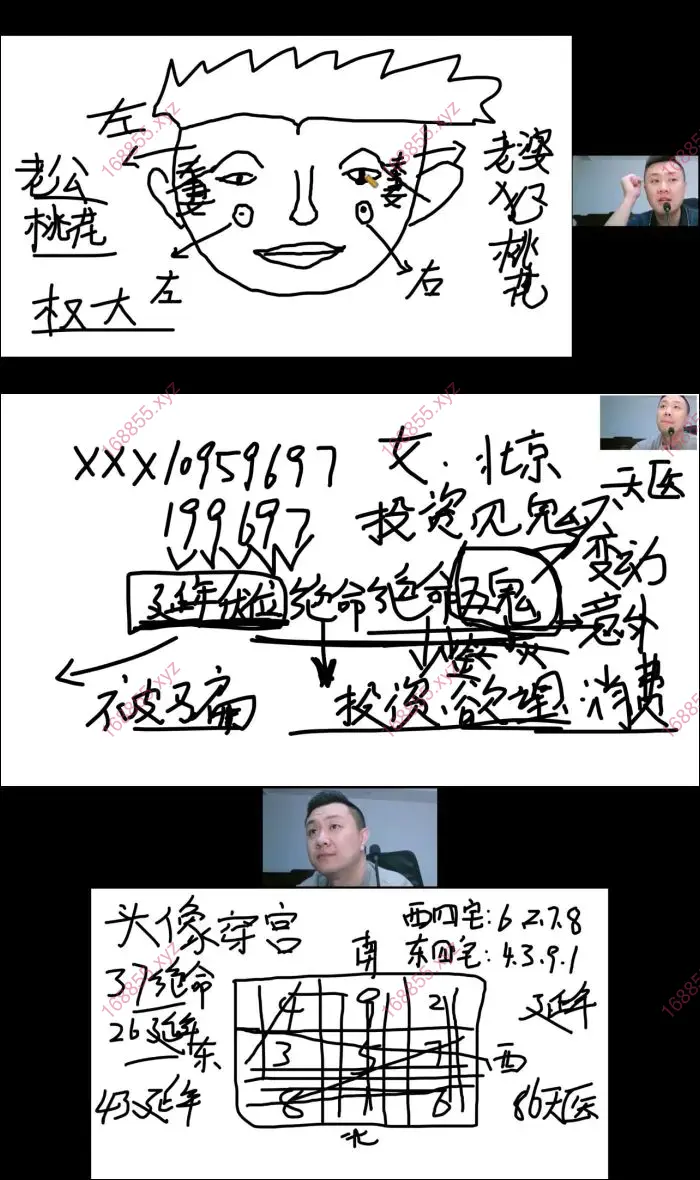 左
老公
桃花
权大
妻妾
妻妾
老婆
桃花
左
右
XXX10959697 女.北京
199697 投资见鬼 天医
延年伏位绝命绝命五鬼
变动
意外
被骗 投资.欲望.消费
头像穿宫
西四宅:6.2.7.8
东四宅:4.3.9.1
南
37绝命
26延年
东
43延年
4 9 2
3 5 7
8 1 6
西
北
延年
86天医
168855.xyz
168855.xyz
168855.xyz
168855.xyz
168855.xyz
168855.xyz
168855.xyz
168855.xyz
168855.xyz
168855.xyz
168855.xyz